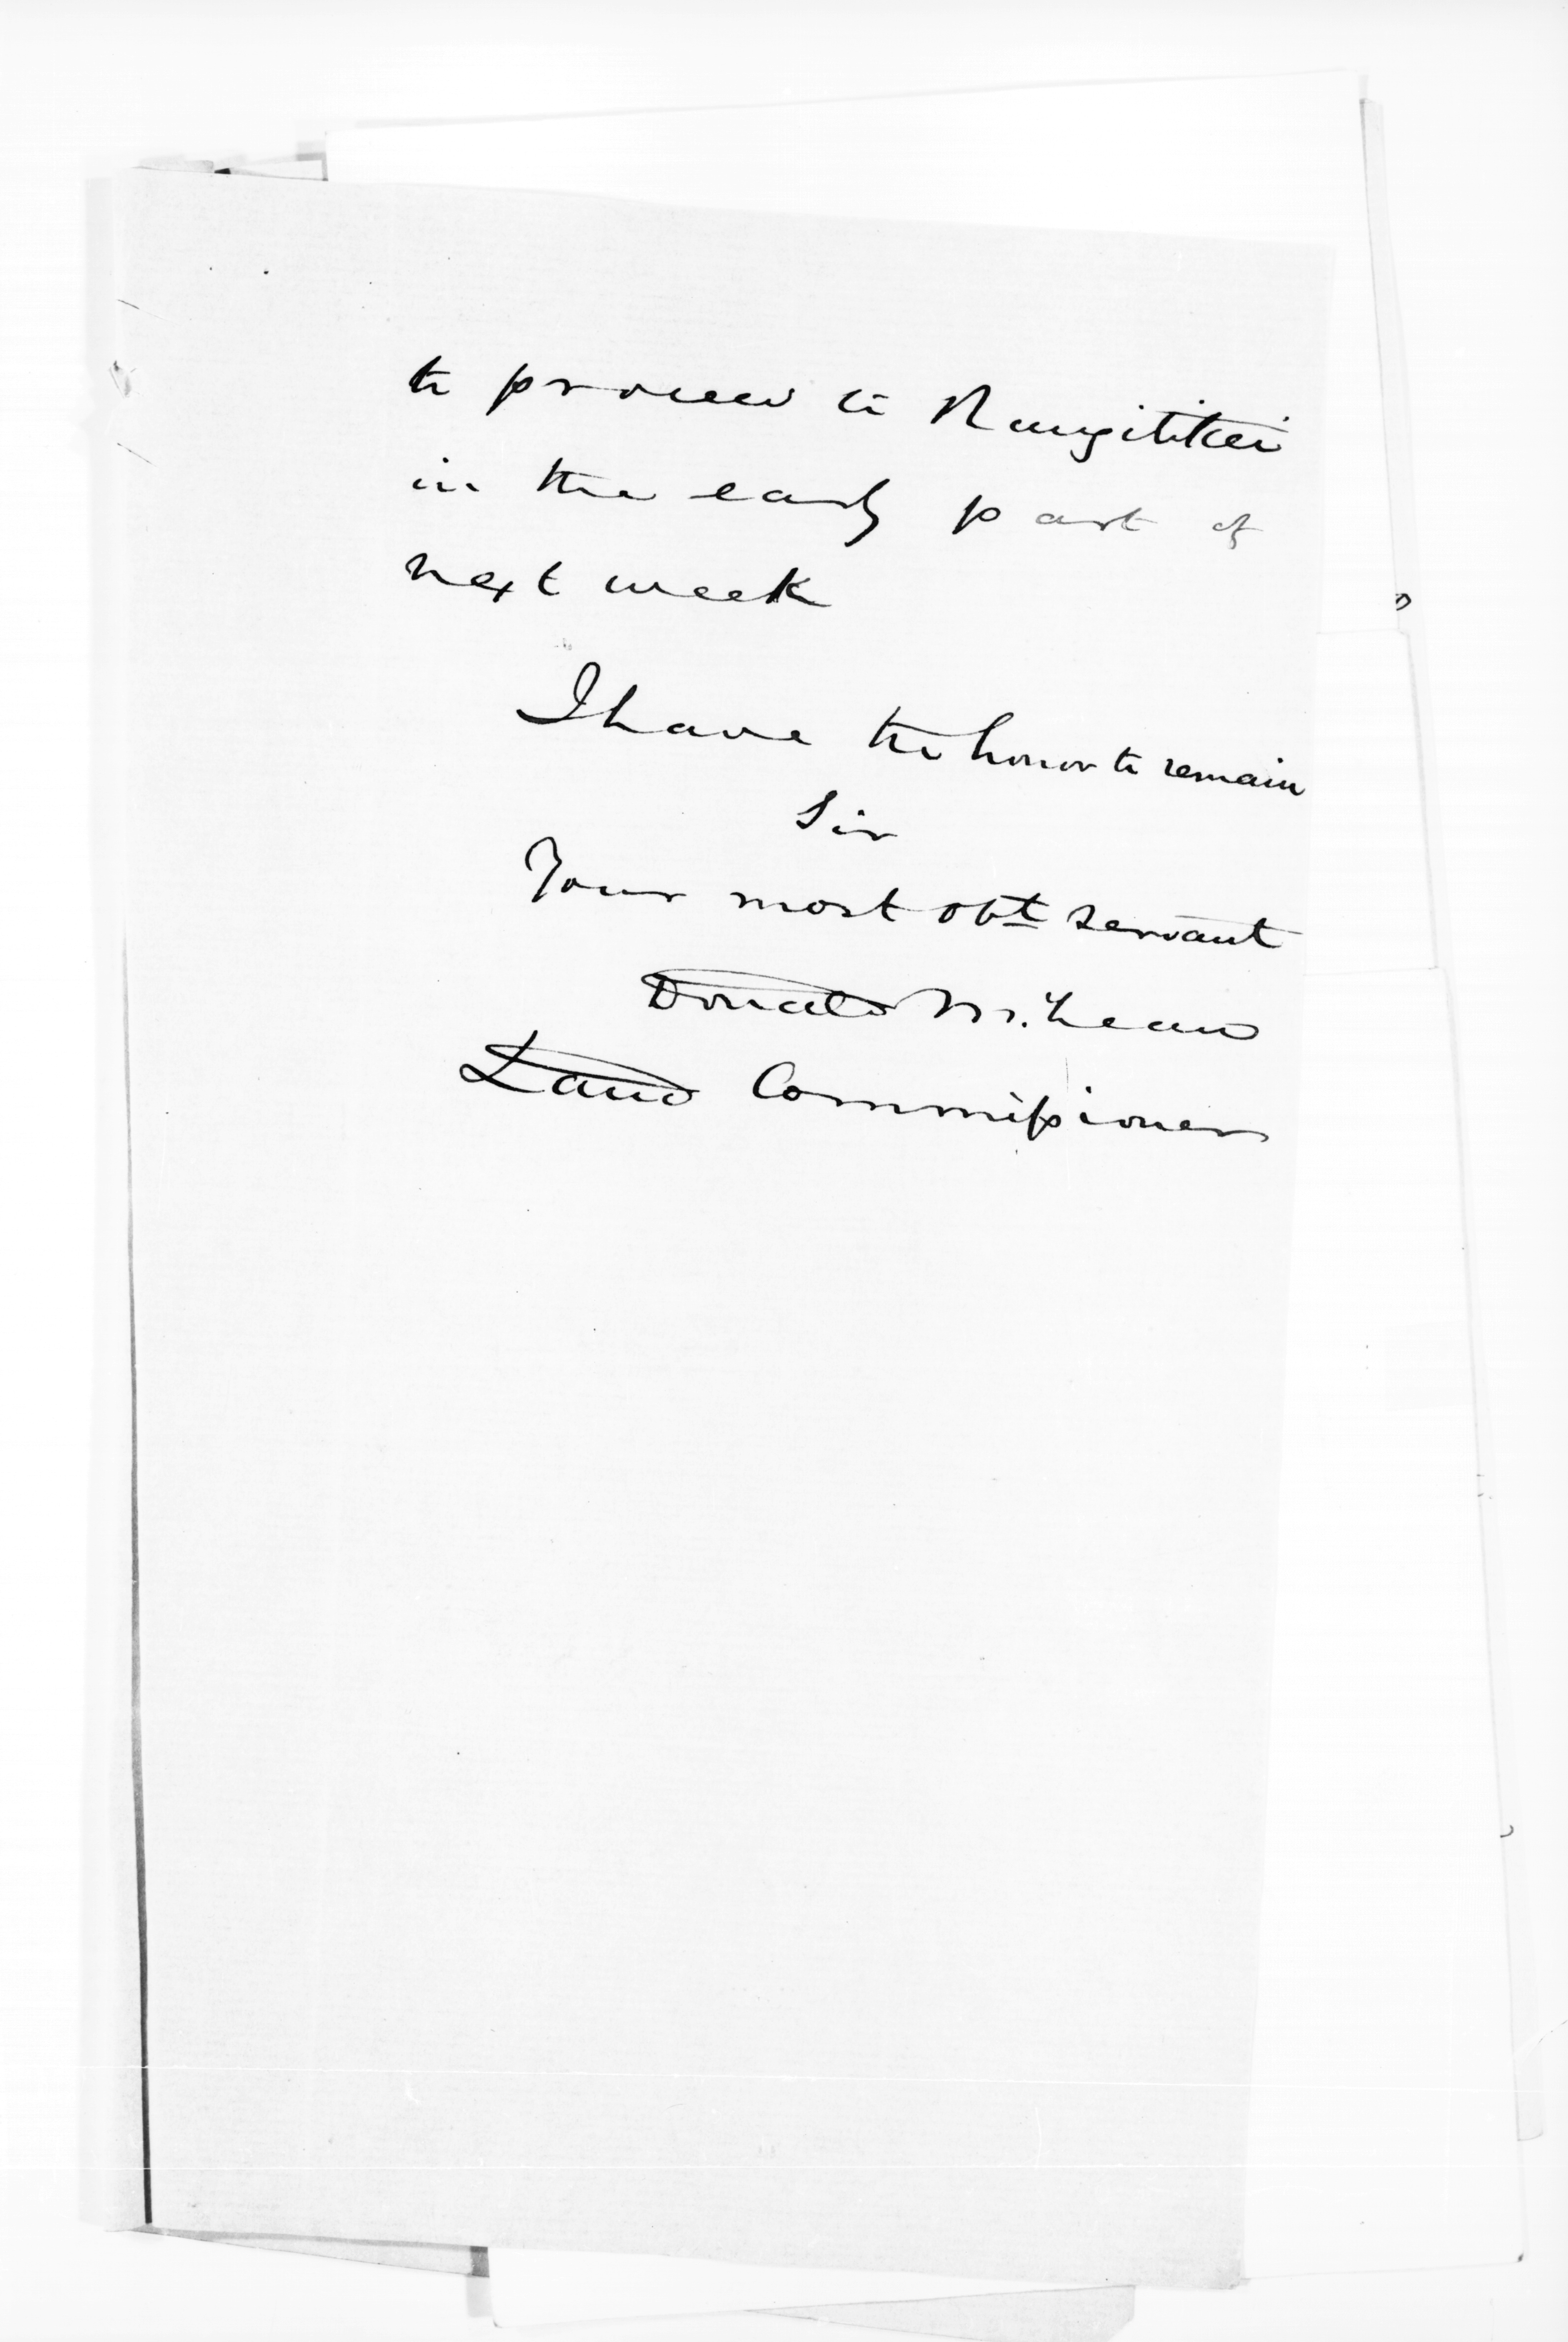 to proceed to Rangitikei
in the early part of
next week
I have the honor to remain
Sir
Your most obt servant
Donald McLean
Land Commissioner